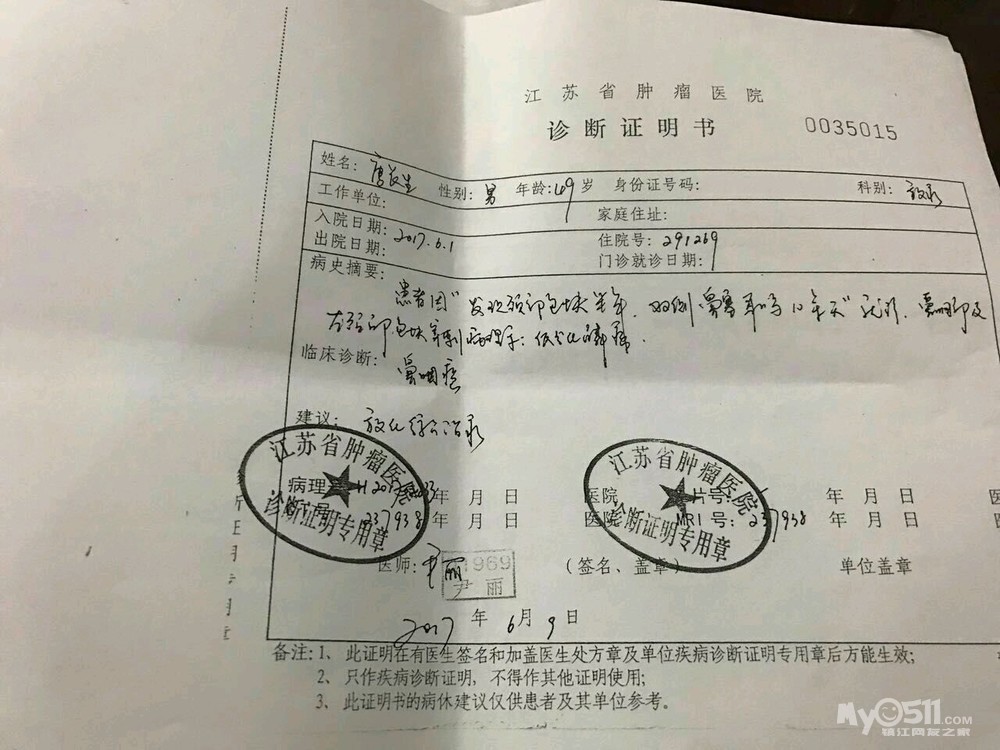 江苏省肿瘤医院
诊断证明书 0035015
姓名: 唐长生 性别: 男 年龄: 49 岁 身份证号码: 科别: 放疗
工作单位: 家庭住址:
入院日期: 2017.6.1 住院号: 291269
出院日期: 门诊就诊日期:
病史摘要:
患者因"发现颈部包块半年,双侧鼻塞耳鸣10余天"就诊.鼻咽部及
左颈部包块穿刺病理示:低分化鳞癌.
临床诊断:
鼻咽癌
建议: 放化综合治疗
江苏省肿瘤医院
诊断证明专用章
江苏省肿瘤医院
诊断证明专用章
病理 H2017 年 月 日 医院 片号: 年 月 日 医
号: 237938 年 月 日 医院 MRI号: 237938 年 月 日 医
医师: 尹丽 1969 尹丽 (签名、盖章) 单位盖章
2017 年 6月 9日
备注:1、此证明在有医生签名和加盖医生处方章及单位疾病诊断证明专用章后方能生效;
2、只作疾病诊断证明,不得作其他证明使用;
3、此证明书的病休建议仅供患者及其单位参考。
My0511.COM
镇江网友之家